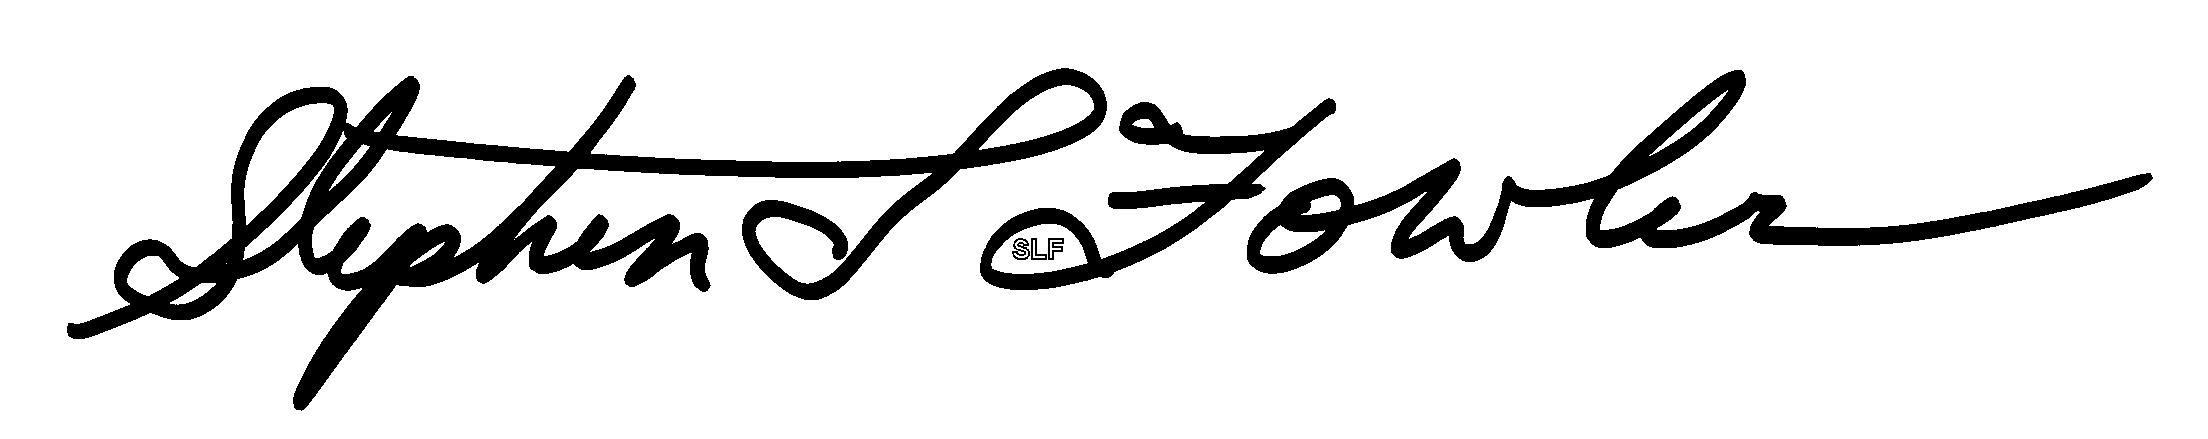 Stephen L Fowler
SLF